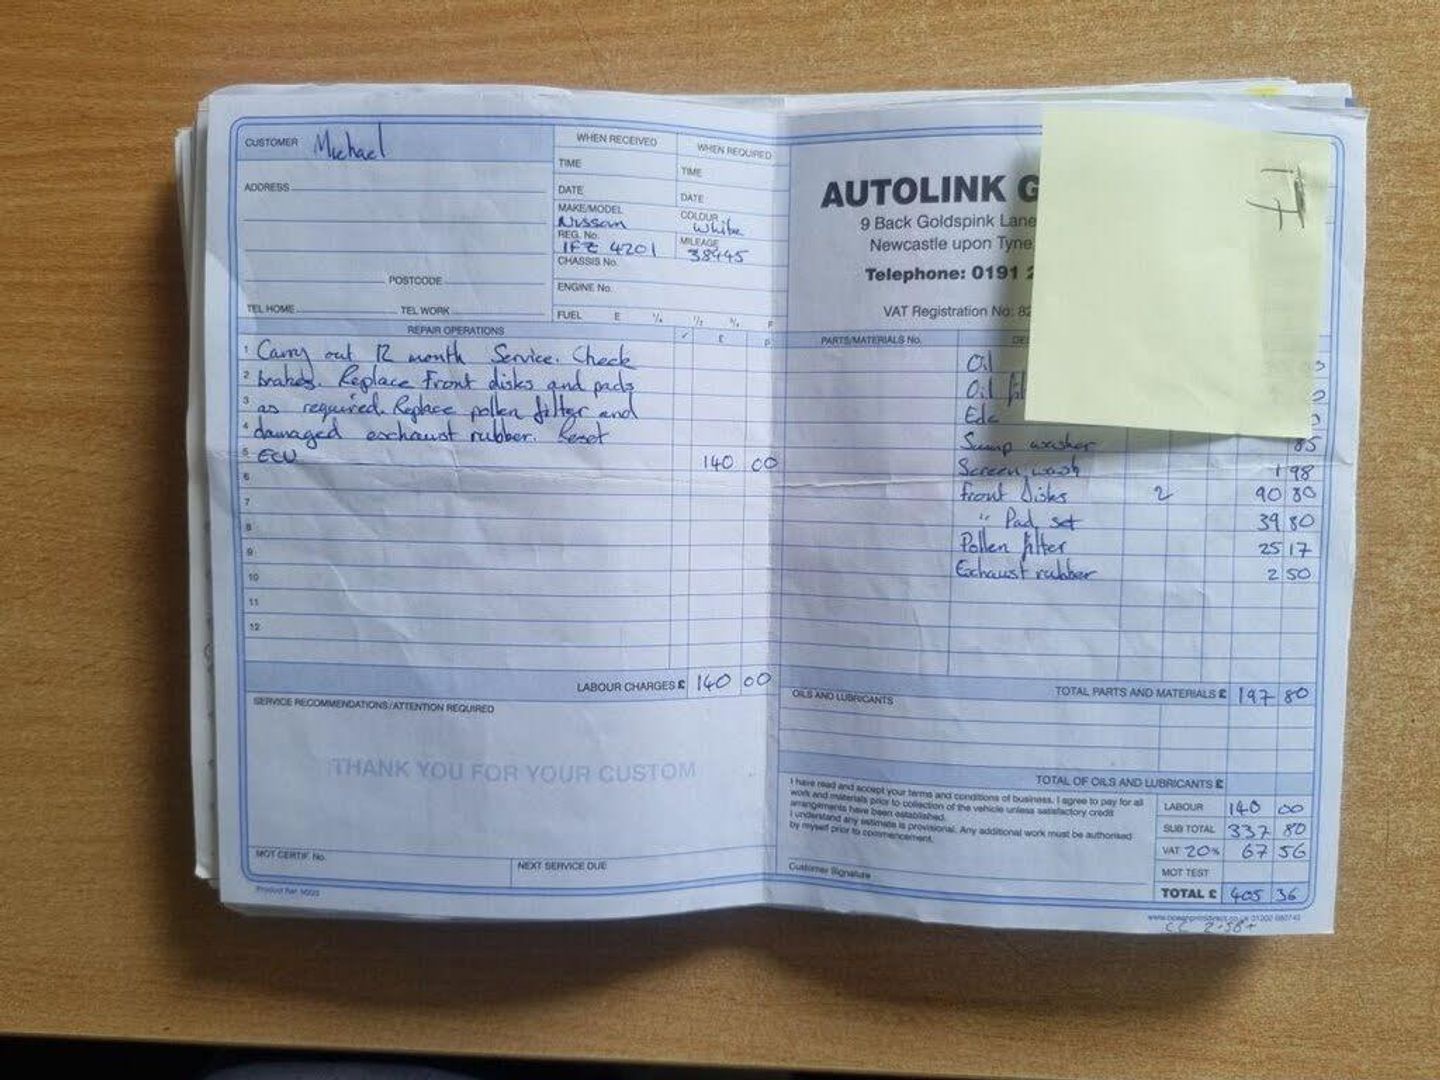 CUSTOMER Michael
ADDRESS
POSTCODE
TEL HOME TEL WORK
WHEN RECEIVED WHEN REQUIRED
TIME TIME
DATE DATE
MAKE/MODEL COLOUR
Nissan White
REG. No. MILEAGE
IFZ 4201 38445
CHASSIS No.
ENGINE No.
FUEL E 1/4 1/2 3/4 F
REPAIR OPERATIONS ✓ £ p
1 Carry out 12 month Service. Check
2 brakes. Replace Front disks and pads
3 as required. Replace pollen filter and
4 damaged exhaust rubber. Reset
5 ECU 140 00
6
7
8
9
10
11
12
LABOUR CHARGES £ 140 00
SERVICE RECOMMENDATIONS/ATTENTION REQUIRED
THANK YOU FOR YOUR CUSTOM
MOT CERTIF. No.
NEXT SERVICE DUE
AUTOLINK G
9 Back Goldspink Lane
Newcastle upon Tyne
Telephone: 0191 2
VAT Registration No: 82
PARTS/MATERIALS No. DE
Oil
Oil fil
Sump washer 85
Screen wash 1 98
Front Disks 2 90 80
" Pad set 39 80
Pollen filter 25 17
Exhaust rubber 2 50
TOTAL PARTS AND MATERIALS £ 197 80
OILS AND LUBRICANTS
TOTAL OF OILS AND LUBRICANTS £
I have read and accept your terms and conditions of business. I agree to pay for all
work and materials prior to collection of the vehicle unless satisfactory credit
arrangements have been established.
I understand any estimate is provisional. Any additional work must be authorised
by myself prior to commencement.
Customer Signature
LABOUR 140 00
SUB TOTAL 337 80
VAT 20% 67 56
MOT TEST
TOTAL £ 405 36